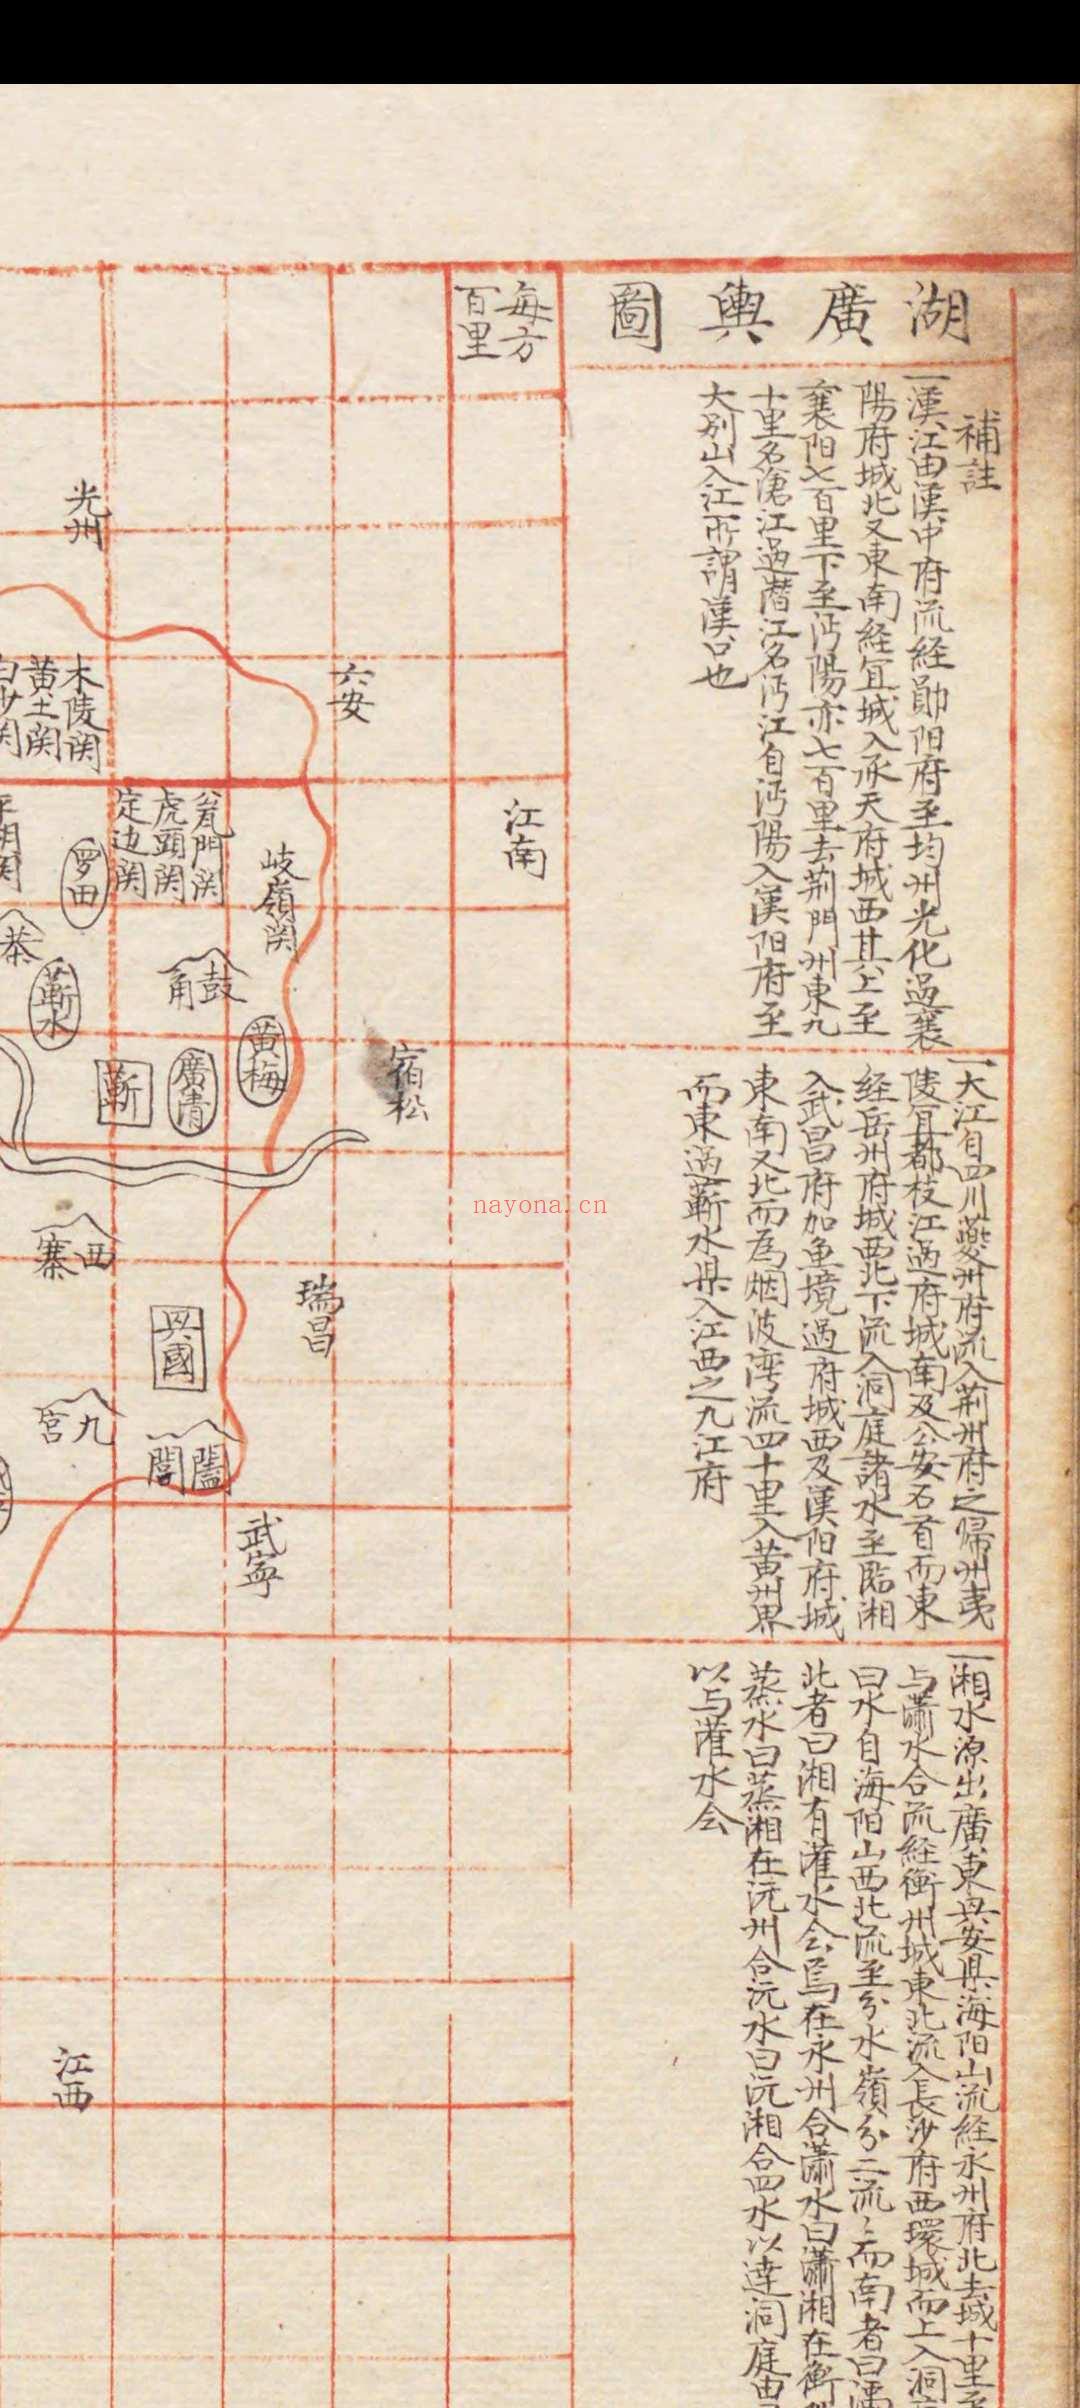 湖廣輿圖
補註
一漢江由漢中府流経鄖阳府至均州光化過襄
陽府城北又東南経宜城入承天府城西其上至
襄阳七百里下至沔陽亦七百里去荆門州東九
十里名滄江過潛江名沔江自沔陽入漢阳府至
大別山入江所謂漢口也
一大江自四川夔州府流入荆州府之帰州夷
陵宜都枝江過府城南及公安石首而東
経岳州府城西北下流入洞庭諸水至臨湘
入武昌府加魚境過府城西及漢阳府城
東南又北而為烟波湾流四十里入黄州界
而東過蘄水県入江西之九江府
一湘水源出廣東興安県海阳山流経永州府北去城十里至
与瀟水合流経衡州城東北流入長沙府西環城而上入洞
曰水自海阳山西北流至分水嶺分二流〻而南者曰
北者曰湘有灌水会焉在永州合瀟水曰瀟湘在衡
蒸水曰蒸湘在沅州合沅水曰沅湘合四水以達洞庭由
以与灌水会
每方
百里
江南
宿松
六安
瑞昌
岐嶺関
黄梅
武寧
鼓角
瓮門関
虎頭関
定边関
廣濟
興國
闔閭
蘄
光州
木陵関
黄土関
白沙関
罗田
蘄水
茶
西塞
九宮
江西
nayona.cn